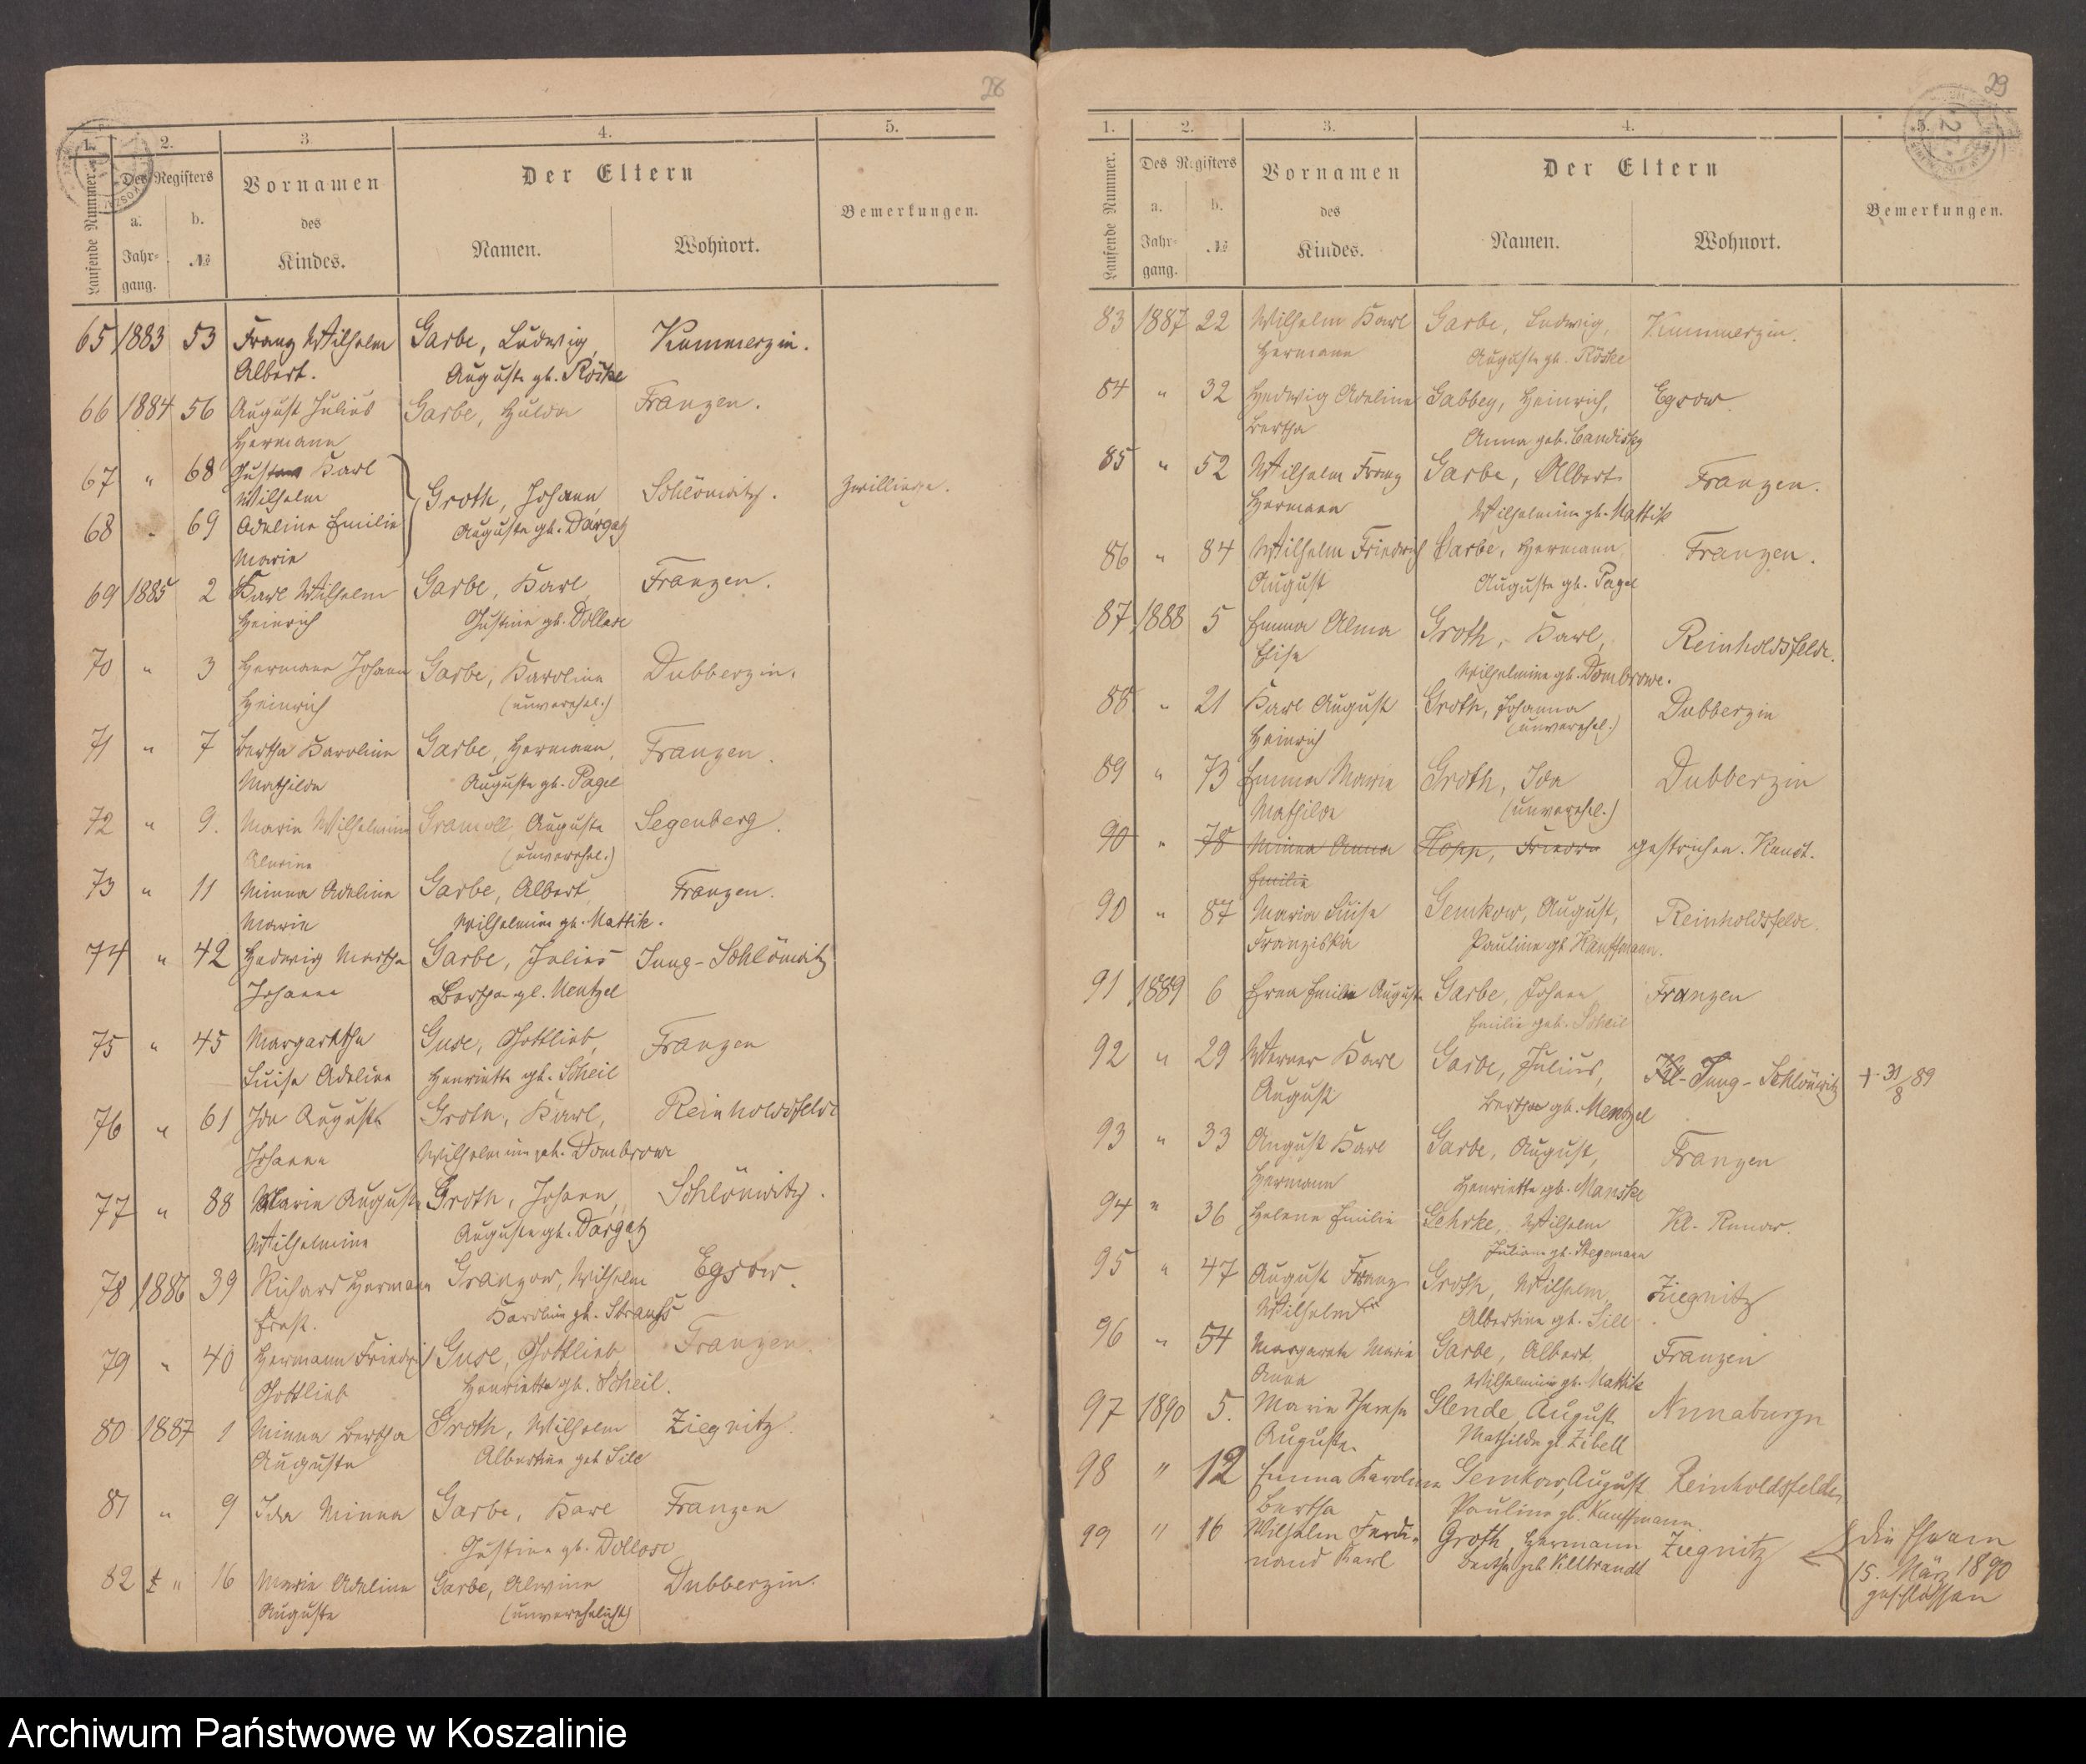 28
1. 2. 3 4. 5.
Laufende Nummer.
Des Registers
a. b.
Jahr-
gang.
№
Vornamen
des
Kindes.
Der Eltern
Namen. Wohnort.
Bemerkungen.
65 1883 53 Franz Wilhelm Garbe, Ludwig, Kummerzin.
Albert. Auguste gb. Röske
66 1884 56 August Julius Garbe, Hulda Franzen.
Hermann
67 " 68 Gustav Karl
Wilhelm Groth, Johann Schlönwitz. Zwillinge.
68 " 69 Adeline Emilie Auguste gb. Dargatz
Marie
69 1885 2 Karl Wilhelm Garbe, Karl, Franzen.
Heinrich Justine gb. Dollase
70 " 3 Hermann Johann Garbe, Karoline Dubberzin.
Heinrich (unverehel.)
71 " 7 Bertha Karoline Garbe, Hermann, Franzen.
Mathilde Auguste gb. Pagel
72 " 9. Marie Wilhelmine Gramoll, Auguste Segenberg.
Alwine (unverehel.)
73 " 11 Minna Adeline Garbe, Albert, Franzen.
Marie Wilhelmine gb. Mattik.
74 " 42 Hedwig Martha Garbe, Julius Jung-Schlönwitz
Johanne Bertha gb. Mentzel
75 " 45 Margarethe Guse, Gottlieb, Franzen
Luise Adeline Henriette gb. Scheil
76 " 61 Ida Auguste Groth, Karl, Reinholdsfelde
Johanne Wilhelmine geb. Dombrowe
77 " 88 Marie Auguste Groth, Johann, Schlönwitz.
Wilhelmine Auguste gb. Dargatz
78 1886 39 Richard Hermann Granzow, Wilhelm Egsow.
Ernst. Karoline gb. Strauß
79 " 40 Hermann Friedrich Guse, Gottlieb Franzen.
Gottlieb Henriette gb. Scheil.
80 1887 1 Minna Bertha Groth, Wilhelm Ziegnitz.
Auguste Albertine geb Sill
81 " 9 Ida Minna Garbe, Karl Franzen
Justine gb. Dollase
82 " 16 Marie Adeline Garbe, Alwine Dubberzin.
Auguste (unverehelicht)
29
1. 2. 3. 4. 5.
Laufende Nummer.
Des Registers
a. b.
Jahr-
gang.
№
Vornamen
des
Kindes.
Der Eltern
Namen. Wohnort.
Bemerkungen.
83 1887 22 Wilhelm Karl Garbe, Ludwig, Kummerzin.
Hermann Auguste gb. Röske
84 " 32 Hedwig Adeline Gabbey, Heinrich, Egsow.
Bertha Anna geb.
85 " 52 Wilhelm Franz Garbe, Albert Franzen.
Hermann Wilhelmine gb. Mattik
86 " 84 Wilhelm Friedrich Garbe, Hermann, Franzen.
August Auguste gb. Pagel
87 1888 5 Emma Alma Groth, Karl, Reinholdsfelde.
Elise Wilhelmine gb. Dombrowe.
88 " 21 Karl August Groth, Johanna Dubberzin
Heinrich (unverehel.)
89 " 73 Emma Marie Groth, Ida Dubberzin
Mathilde (unverehel.)
90 " 78 Minna Anna Hopp, gestrichen. Kunst.
Emilie
90 " 87 Maria Luise Gemkow, August, Reinholdsfelde.
Franziska Pauline gb Kauffmann.
91 1889 6 Erna Emilie Auguste Garbe, Johann Franzen
Emilie geb. Scheil
92 " 29 Werner Karl Garbe, Julius, Jung-Schlönwitz + 31/8 89
August Bertha gb. Mentzel
93 " 33 August Karl Garbe, August, Franzen
Hermann Henriette gb. Manske
94 " 36 Helene Emilie Gehrke, Wilhelm Kl. Runow.
Juliane gb. Stegemann
95 " 47 August Franz Groth, Wilhelm, Ziegnitz
Wilhelm Albertine gb. Sill.
96 " 54 Margarete Marie Garbe, Albert Franzen
Anna Wilhelmine gb. Mattik
97 1890 5. Marie Therese Glende, August Annaburg
Auguste. Mathilde gb Zibell
98 " 12 Emma Karoline Gemkow, August Reinholdsfelde,
Bertha Pauline gb. Kauffmann.
99 " 16 Wilhelm Ferdi- Groth, Hermann Ziegnitz die Ehe am
nand Karl Bertha geb Villbrandt 15. März 1890
geschlossen
Archiwum Państwowe w Koszalinie